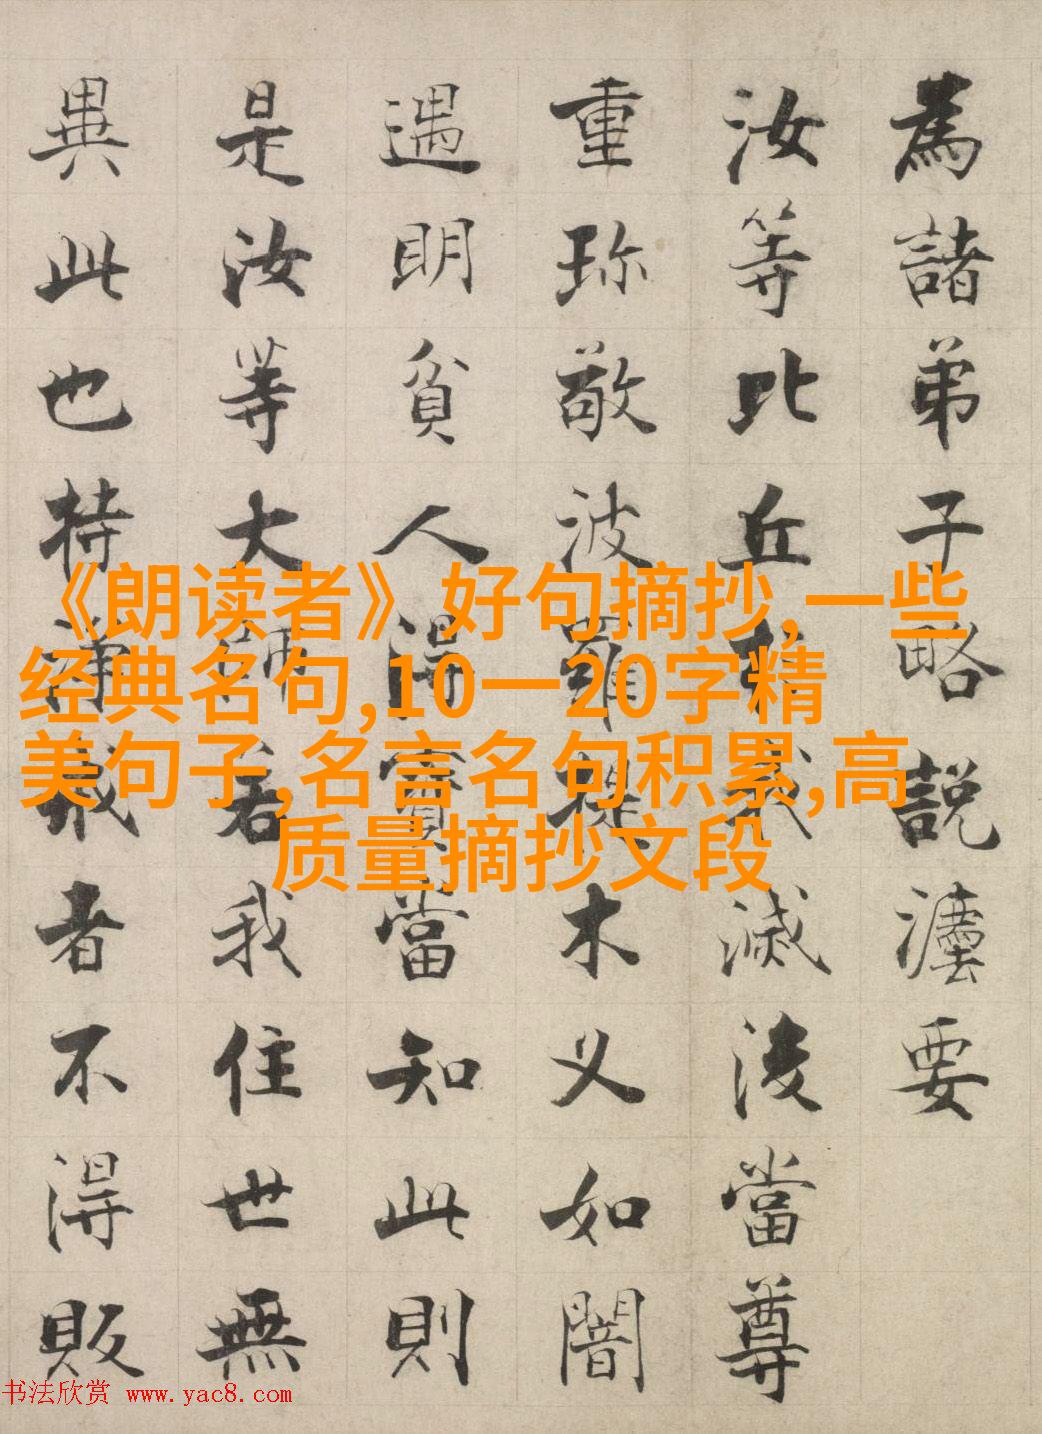 為諸弟子略説法要
汝等比丘於我滅後當尊
重珎敬波羅提木义如闇
遇明貧人得寶當知此則
是汝等大師若我住世無
異此也持淨戒者不得販
《朗读者》好句摘抄,一些
经典名句,10一20字精
美句子,名言名句积累,高
质量摘抄文段
书法欣赏 www.yac8.com